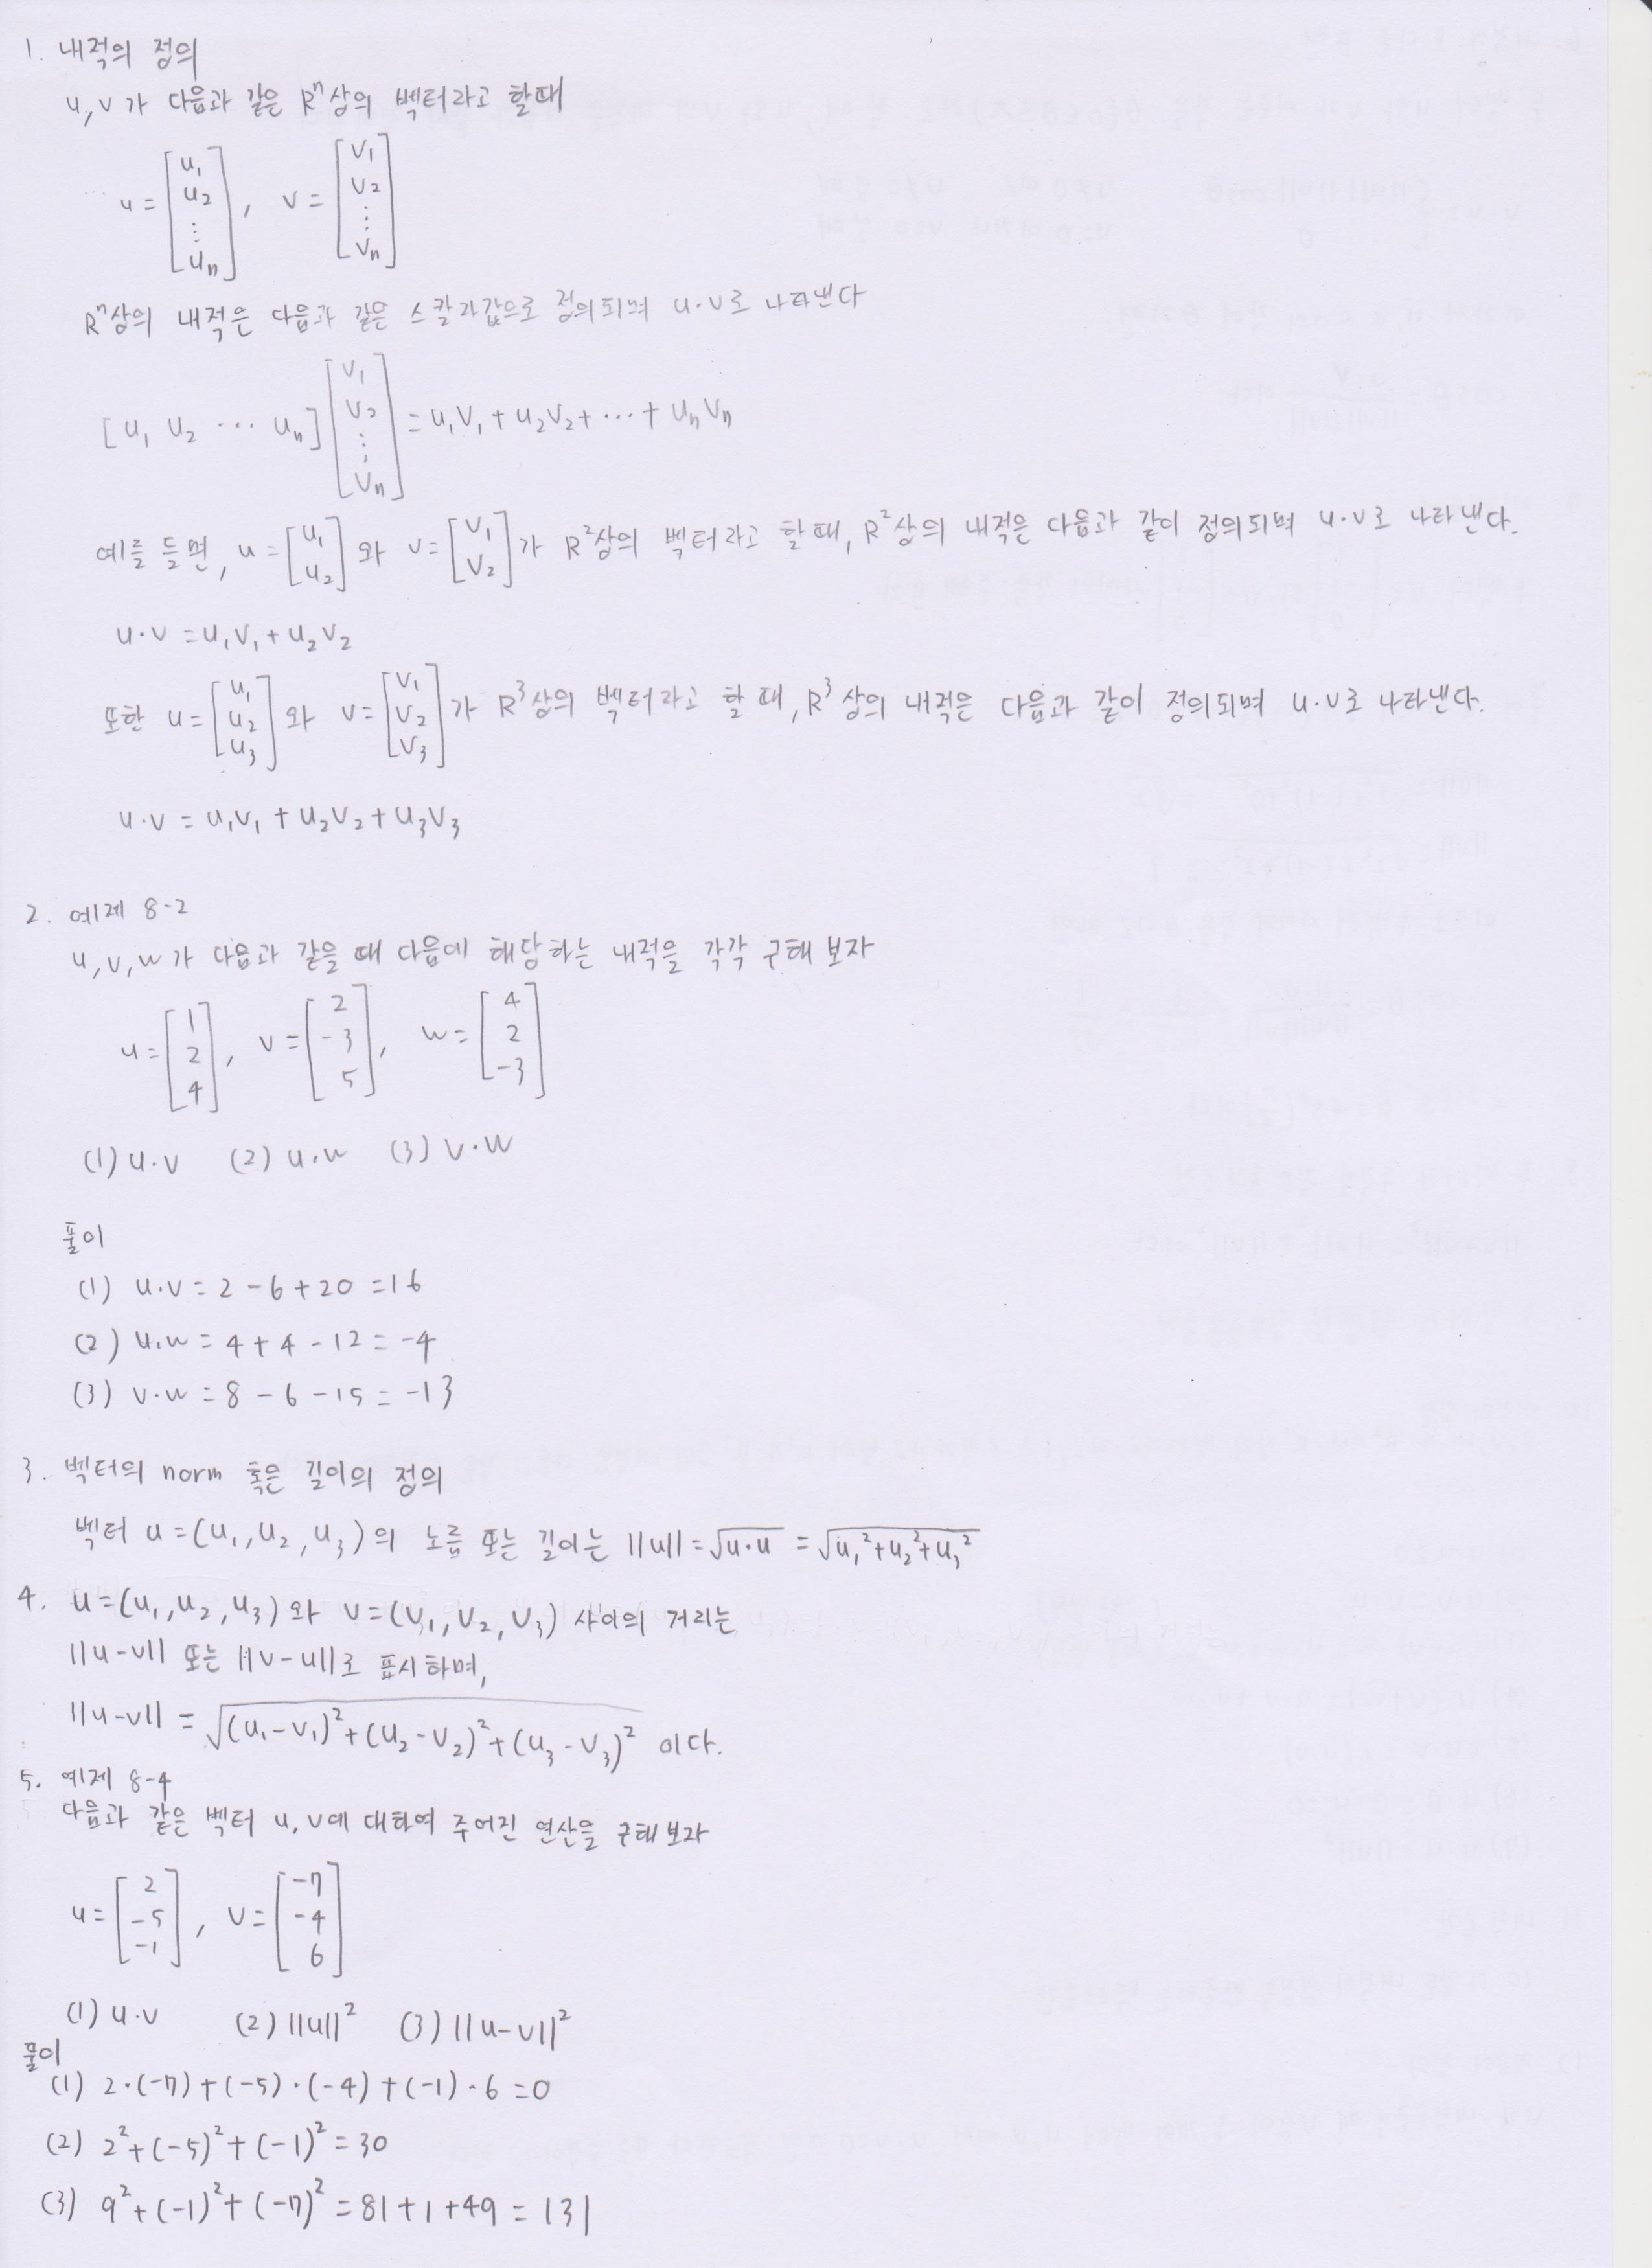 1. 내적의 정의
u, v가 다음과 같은 Rⁿ상의 벡터라고 할때
u = [u₁ u₂ ⋮ uₙ], v = [v₁ v₂ ⋮ vₙ]
Rⁿ상의 내적은 다음과 같은 스칼라값으로 정의되며 u·v로 나타낸다
[u₁ u₂ ⋯ uₙ] [v₁ v₂ ⋮ vₙ] = u₁v₁ + u₂v₂ + ⋯ + uₙvₙ
예를 들면, u = [u₁ u₂] 와 v = [v₁ v₂] 가 R²상의 벡터라고 할때, R²상의 내적은 다음과 같이 정의되며 u·v로 나타낸다.
u·v = u₁v₁ + u₂v₂
또한 u = [u₁ u₂ u₃] 와 v = [v₁ v₂ v₃] 가 R³상의 벡터라고 할 때, R³상의 내적은 다음과 같이 정의되며 u·v로 나타낸다.
u·v = u₁v₁ + u₂v₂ + u₃v₃
2. 예제 8-2
u, v, w가 다음과 같을 때 다음에 해당하는 내적을 각각 구해 보자
u = [1 2 4], v = [2 -3 5], w = [4 2 -3]
(1) u·v (2) u·w (3) v·w
풀이
(1) u·v = 2 - 6 + 20 = 16
(2) u·w = 4 + 4 - 12 = -4
(3) v·w = 8 - 6 - 15 = -13
3. 벡터의 norm 혹은 길이의 정의
벡터 u = (u₁, u₂, u₃)의 노름 또는 길이는 ||u|| = √(u·u) = √(u₁² + u₂² + u₃²)
4. u = (u₁, u₂, u₃) 와 v = (v₁, v₂, v₃) 사이의 거리는
||u-v|| 또는 ||v-u||로 표시하며,
||u-v|| = √((u₁-v₁)² + (u₂-v₂)² + (u₃-v₃)²) 이다.
5. 예제 8-4
다음과 같은 벡터 u, v에 대하여 주어진 연산을 구해보자
u = [2 -5 -1], v = [-7 -4 6]
(1) u·v (2) ||u||² (3) ||u-v||²
풀이
(1) 2·(-7) + (-5)·(-4) + (-1)·6 = 0
(2) 2² + (-5)² + (-1)² = 30
(3) 9² + (-1)² + (-7)² = 81 + 1 + 49 = 131